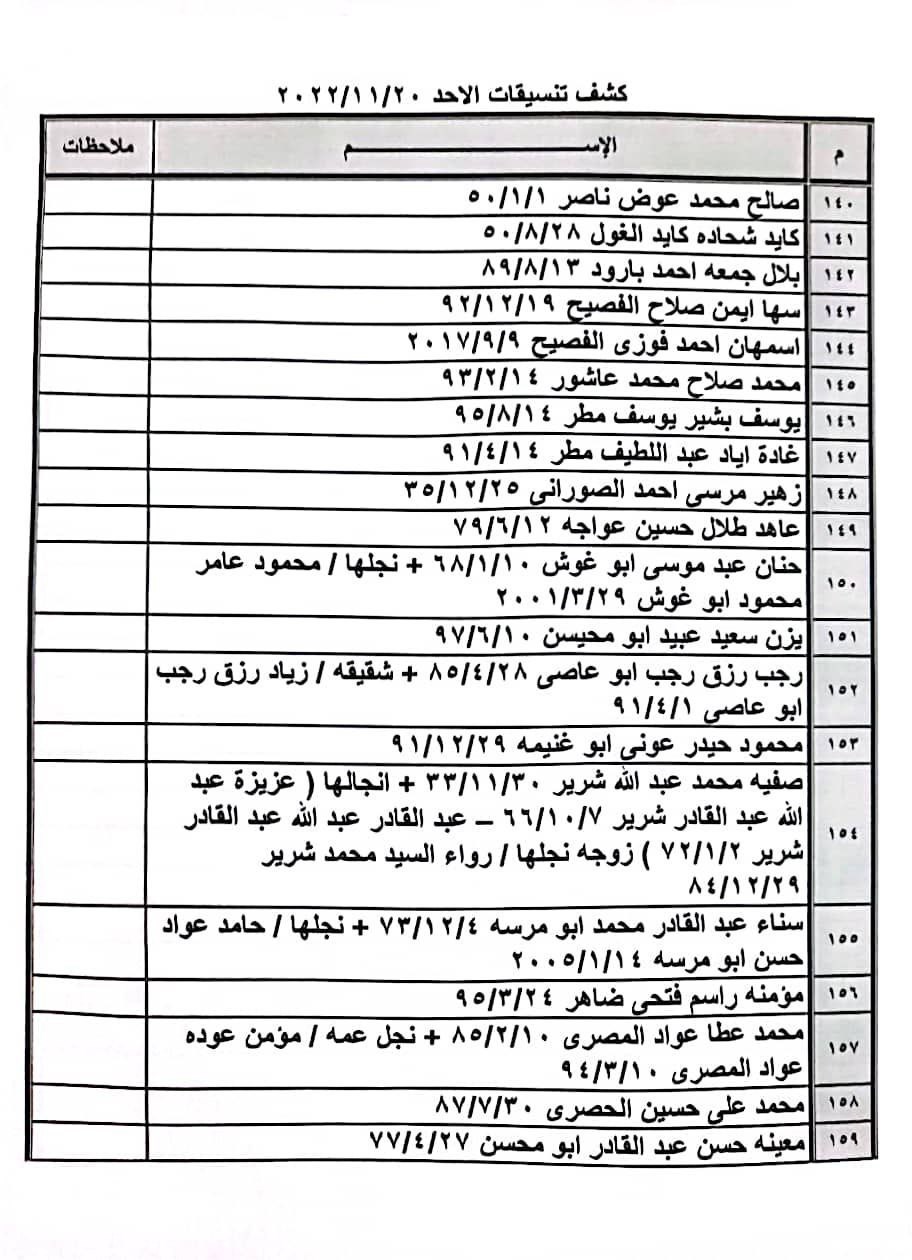 كشف تنسيقات الاحد ٢٠٢٢/١١/٢٠
م الإســـــــــم ملاحظات
١٤٠ صالح محمد عوض ناصر ٥٠/١/١
١٤١ كايد شحاده كايد الغول ٥٠/٨/٢٨
١٤٢ بلال جمعه احمد بارود ٨٩/٨/١٣
١٤٣ سها ايمن صلاح الفصيح ٩٢/١٢/١٩
١٤٤ اسمهان احمد فوزى الفصيح ٢٠١٧/٩/٩
١٤٥ محمد صلاح محمد عاشور ٩٣/٢/١٤
١٤٦ يوسف بشير يوسف مطر ٩٥/٨/١٤
١٤٧ غادة اياد عبد اللطيف مطر ٩١/٤/١٤
١٤٨ زهير مرسى احمد الصورانى ٣٥/١٢/٢٥
١٤٩ عاهد طلال حسين عواجه ٧٩/٦/١٢
١٥٠ حنان عبد موسى ابو غوش ٦٨/١/١٠ + نجلها / محمود عامر
محمود ابو غوش ٢٠٠١/٣/٢٩
١٥١ يزن سعيد عبيد ابو محيسن ٩٧/٦/١٠
١٥٢ رجب رزق رجب ابو عاصى ٨٥/٤/٢٨ + شقيقه / زياد رزق رجب
ابو عاصى ٩١/٤/١
١٥٣ محمود حيدر عوني ابو غنيمه ٩١/١٢/٢٩
١٥٤ صفيه محمد عبد الله شرير ٣٣/١١/٣٠ + انجالها ( عزيزة عبد
الله عبد القادر شرير ٦٦/١٠/٧ – عبد القادر عبد الله عبد القادر
شرير ٧٢/١/٢ ) زوجه نجلها / رواء السيد محمد شرير
٨٤/١٢/٢٩
١٥٥ سناء عبد القادر محمد ابو مرسه ٧٣/١٢/٤ + نجلها / حامد عواد
حسن ابو مرسه ٢٠٠٥/١/١٤
١٥٦ مؤمنه راسم فتحى ضاهر ٩٥/٣/٢٤
١٥٧ محمد عطا عواد المصرى ٨٥/٢/١٠ + نجل عمه / مؤمن عوده
عواد المصرى ٩٤/٣/١٠
١٥٨ محمد على حسين الحصرى ٨٧/٧/٣٠
١٥٩ معينه حسن عبد القادر ابو محسن ٧٧/٤/٢٧